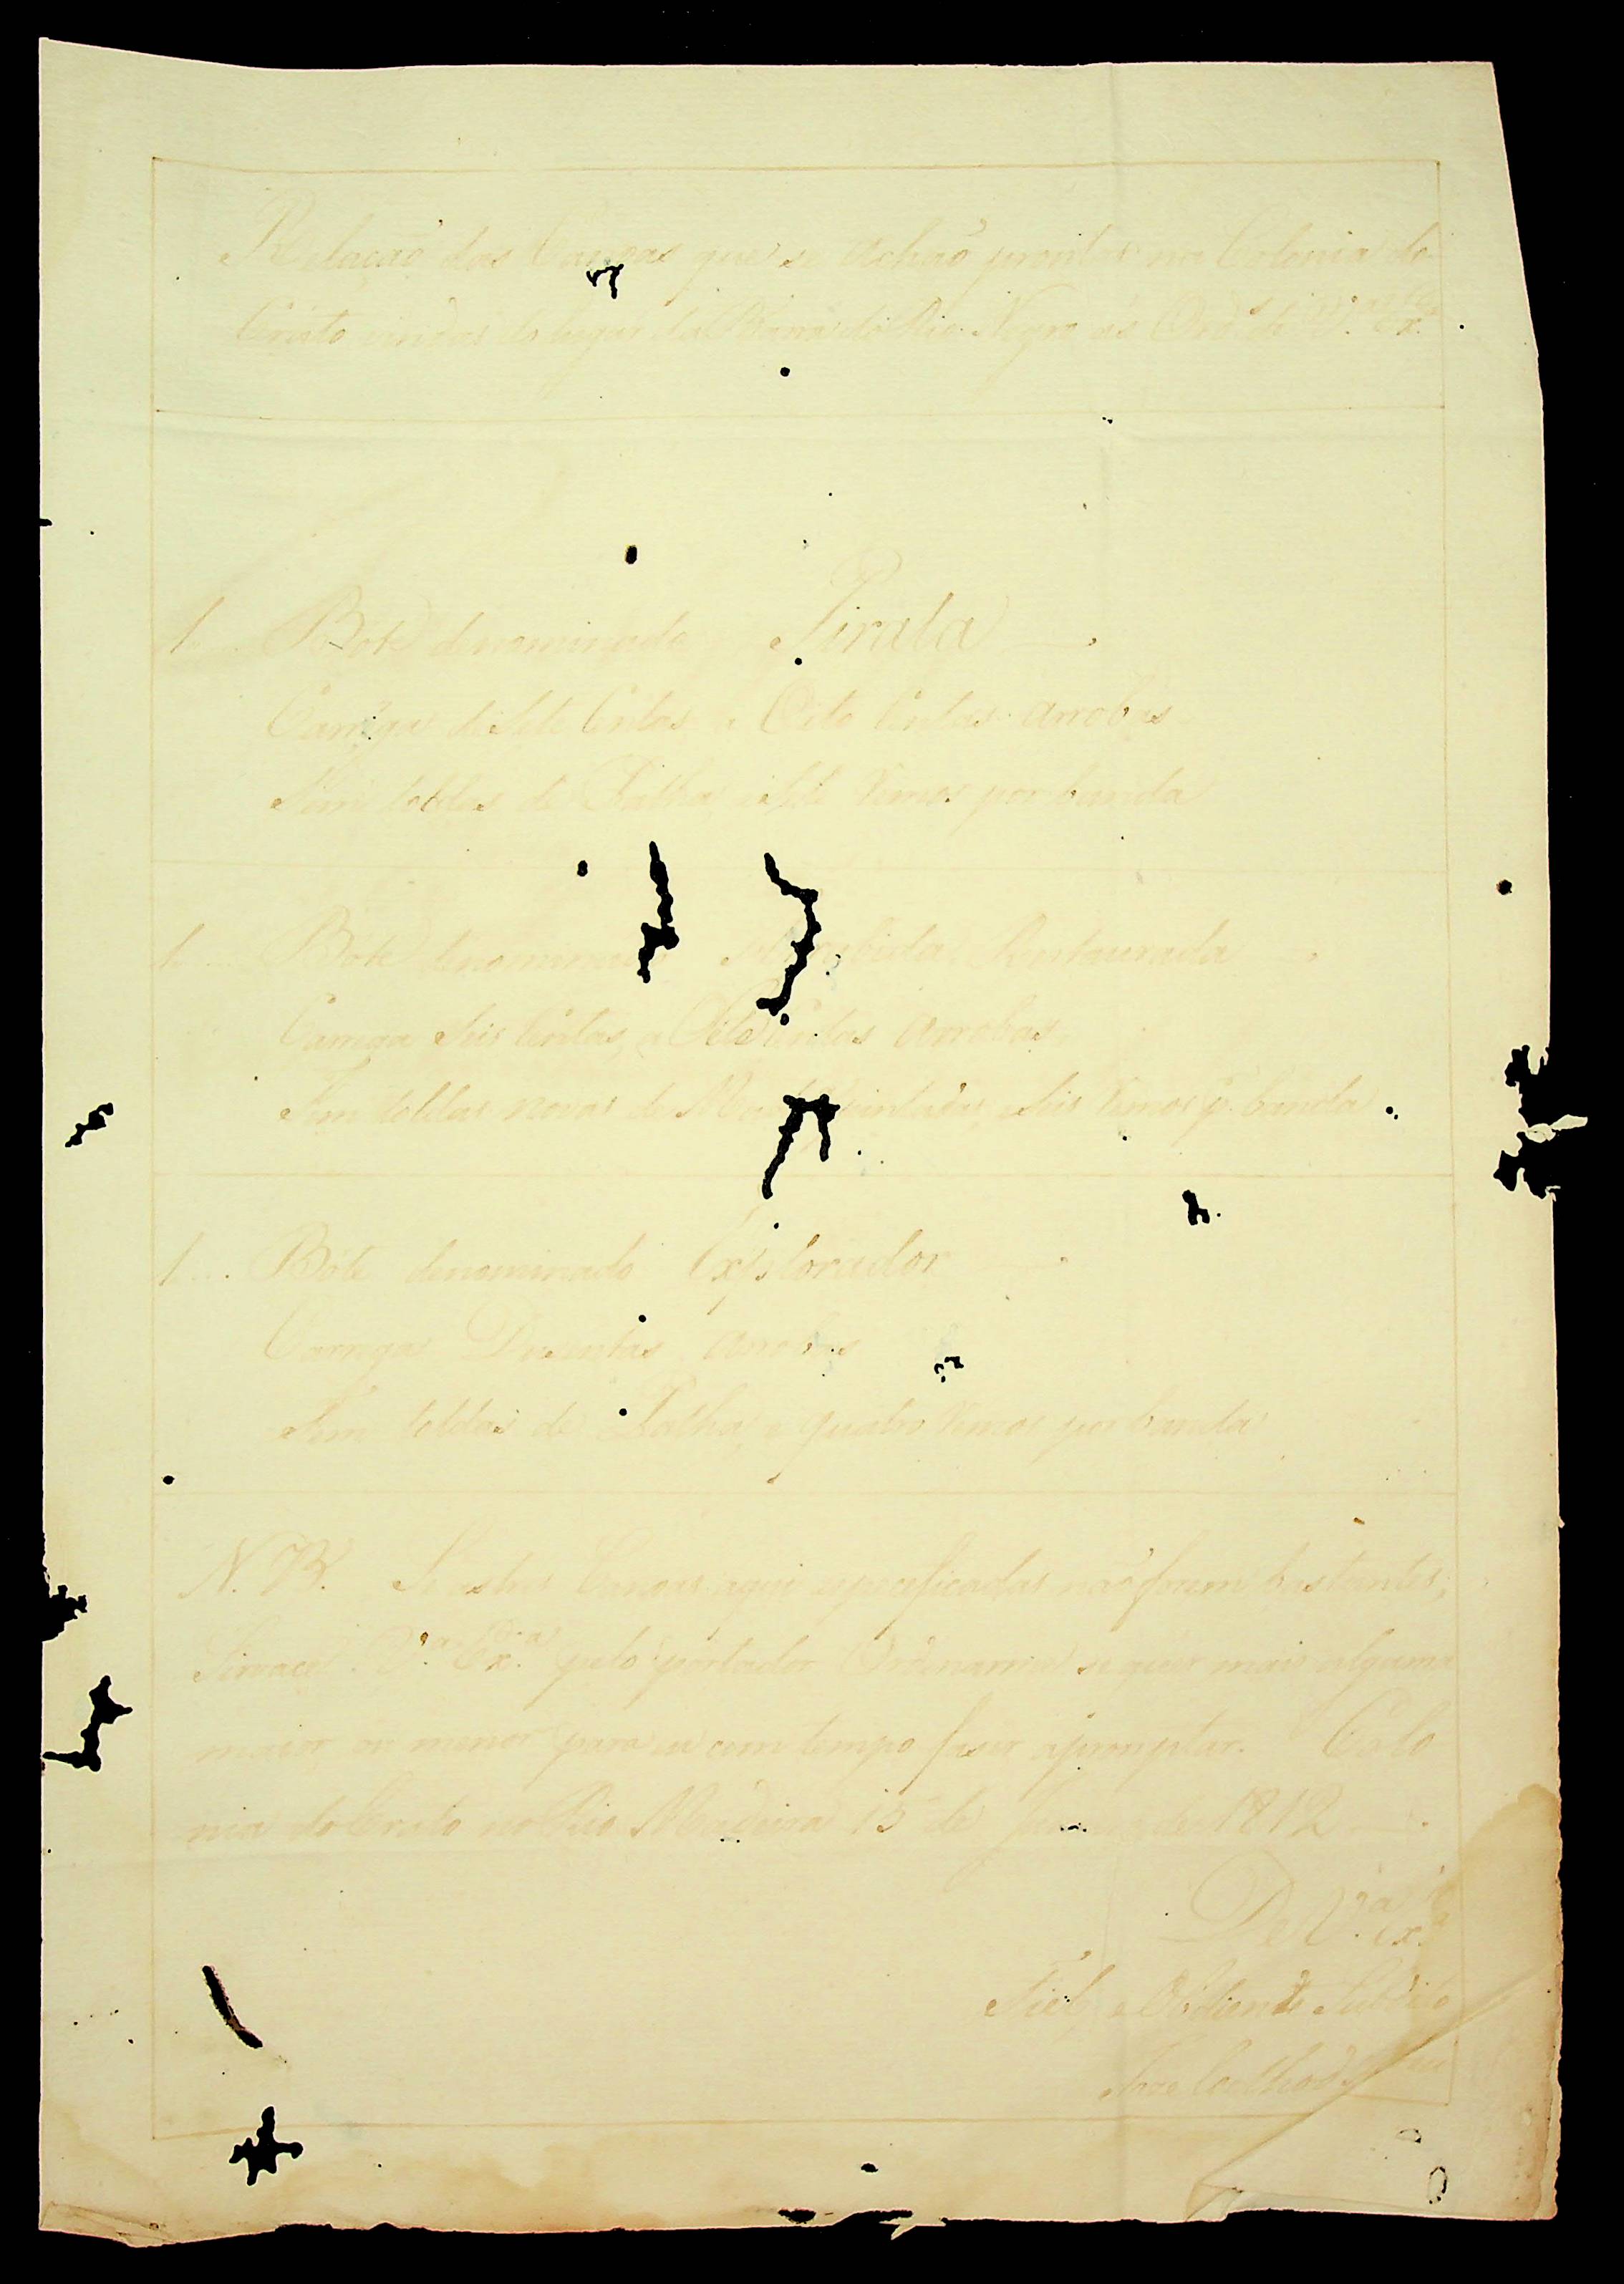 Relação das Canoas que se achão promptas na Colonia do
Crato vindas do lugar da Barra do Rio Negro ás Ord.s de V.a Ex.a
1... Bote denominado Pirata
Carrega de Sete Centas a Oito Centas arrobas
Tem toldas de Palha, e Sete Remos por banda
1... Bote denominado Restaurada
Carrega Seis Centas, a Sete Centas arrobas
Tem toldas novas de pintadas, e Seis Remos p.r banda
1... Bote denominado Explorador
Carrega Duzentas arrobas
Tem toldas de Palha, e quatro Remos por banda
N.B. Se estas Canoas aqui especificadas não forem bastantes,
V.a Ex.a pelo portador Ordenarme se quer mais alguma
maior ou menor para eu com tempo fazer apromptar. Colo
nia do Crato no Rio Madeira 15 de de 1812
De V.a Ex.a
Fiel, e Obdiente Subdito